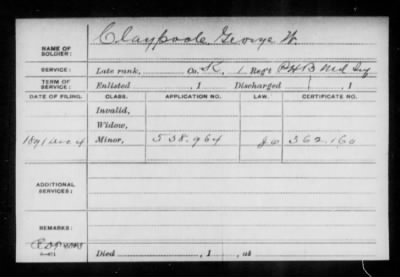 NAME OF SOLDIER: Claypoole George W.
SERVICE: Late rank, Co. K, 1 Reg't P.H.B. Md Inf
TERM OF SERVICE: Enlisted , 1 Discharged , 1
DATE OF FILING. CLASS. APPLICATION NO. LAW. CERTIFICATE NO.
Invalid,
Widow,
1891 Dec 4 Minor, 538.964 362.160
ADDITIONAL SERVICES:
REMARKS:
Died , 1 , at